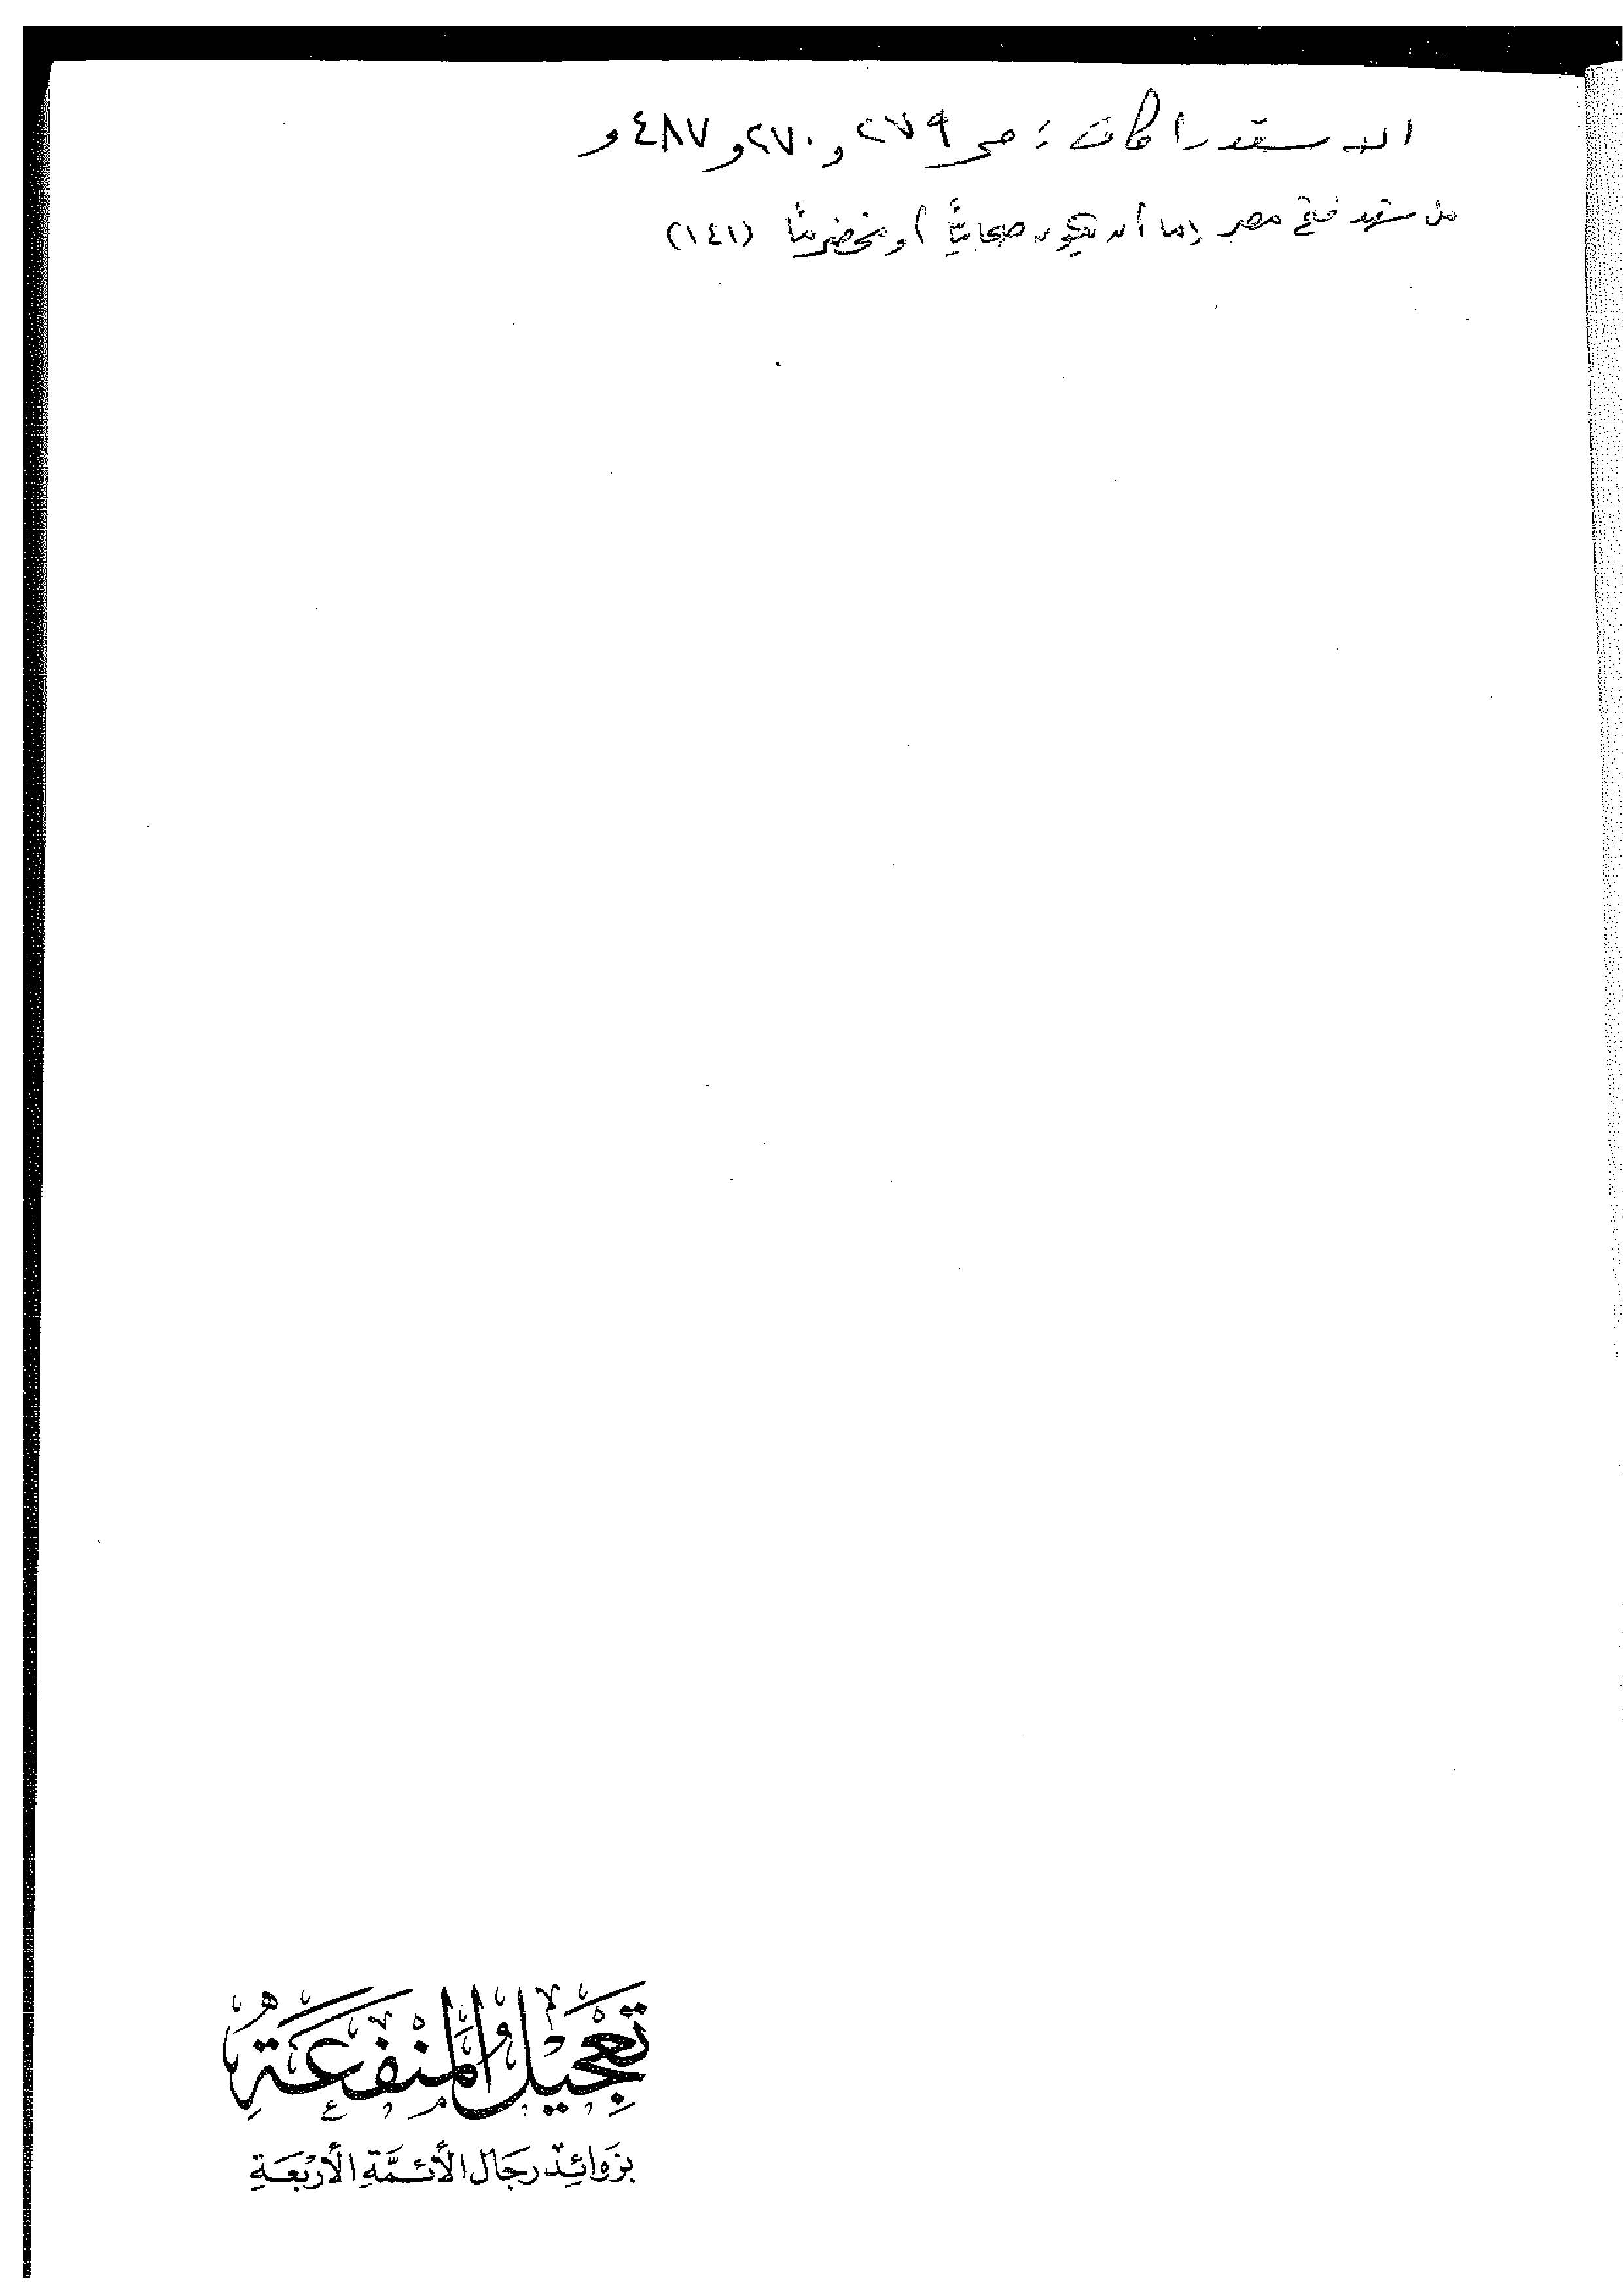 الاستدراكات : ص ٢٧٩ و ٢٧٠ و ٤٨٧ و
من شهد فتح مصر إما أن يكون صحابيًّا أو مخضرمًا (١٤١)
تَعْجِيلُ المَنْفَعَةِ
بِزَوَائِدِ رِجَالِ الأَئِمَّةِ الأَرْبَعَةِ